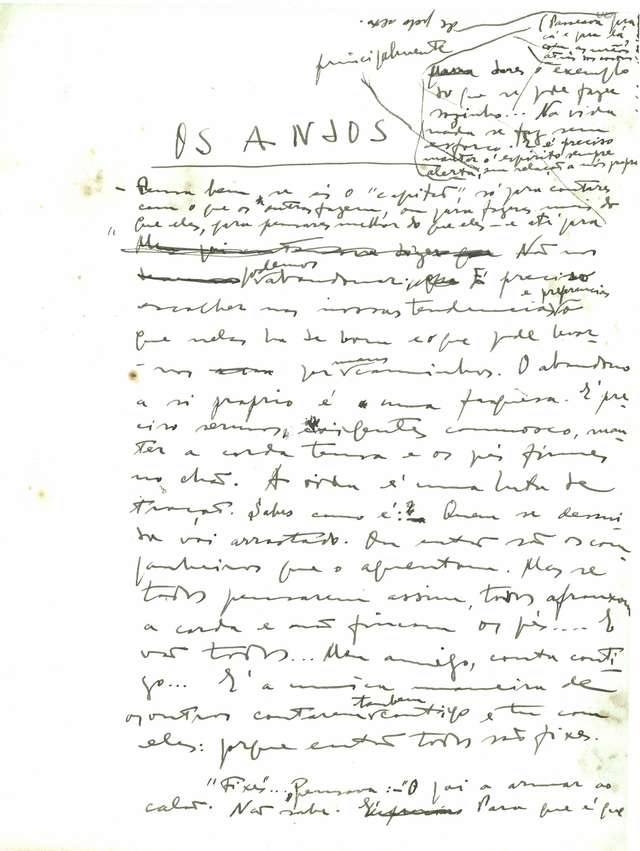 OS ANJOS
principalmente
de pelo aero.
(Passeava para
cá e para lá
com as mãos
dares o exemplo
do que se pode fazer
sozinho... Na vida
nada se faz sem
esforço. E é preciso
manter o espírito sempre
alerta, em relação a nós próprios
– Pensa bem, se és o "capitão", só para contares
com o que os outros fazem, ou para fazeres mais do
que eles, para pensares melhor do que eles – e até pra
Não nos
podemos abandonar, É preciso
escolher nas nossas tendencias e preferencias o
que nelas ha de bom e o que pode levar-
-nos por maus caminhos. O abandono
a si proprio é uma fraqueza. É pre-
ciso sermos exigentes connosco, man-
ter a corda tensa e os pés firmes
no chão. A vida é uma luta de
tracção. Sabes como é? Quem se descui-
da vai arrastado. Ou então são os com-
panheiros que o aguentam. Mas se
todos pensarem assim, todos afrouxam
a corda e não fincam os pés.... E
vão todos... Meu amigo, conta conti-
go... É a unica maneira de
os outros contarem tambem contigo e tu com
eles: porque então todos são fixes.
"Fixes"... Pensava: – "O pai a armar ao
calão. Não sabe. Para que é que